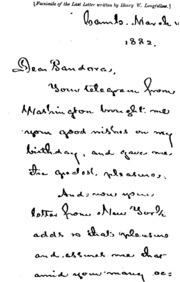 [Facsimile of the Last Letter written by Henry W. Longfellow.]
Camb. March
1882.
Dear Bandara,
Your telegram from
Washington brought me
your good wishes on my
birthday, and gave me
the greatest pleasure.
And now your
letter from New York
adds to that pleasure
and assures me that
amid your many oc-